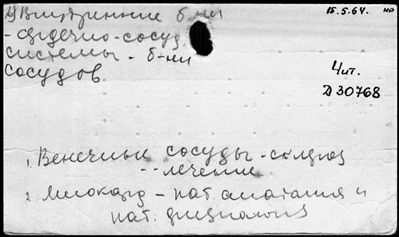 А) Внутренние б-ни
15.5.64. нр
- сердечно-сосуд.
системы - б-ни
сосудов
Чит.
Д 30768
1. Венечные сосуды - склероз
-"- лечение
2. Миокард - пат. анатомия и
пат. физиология